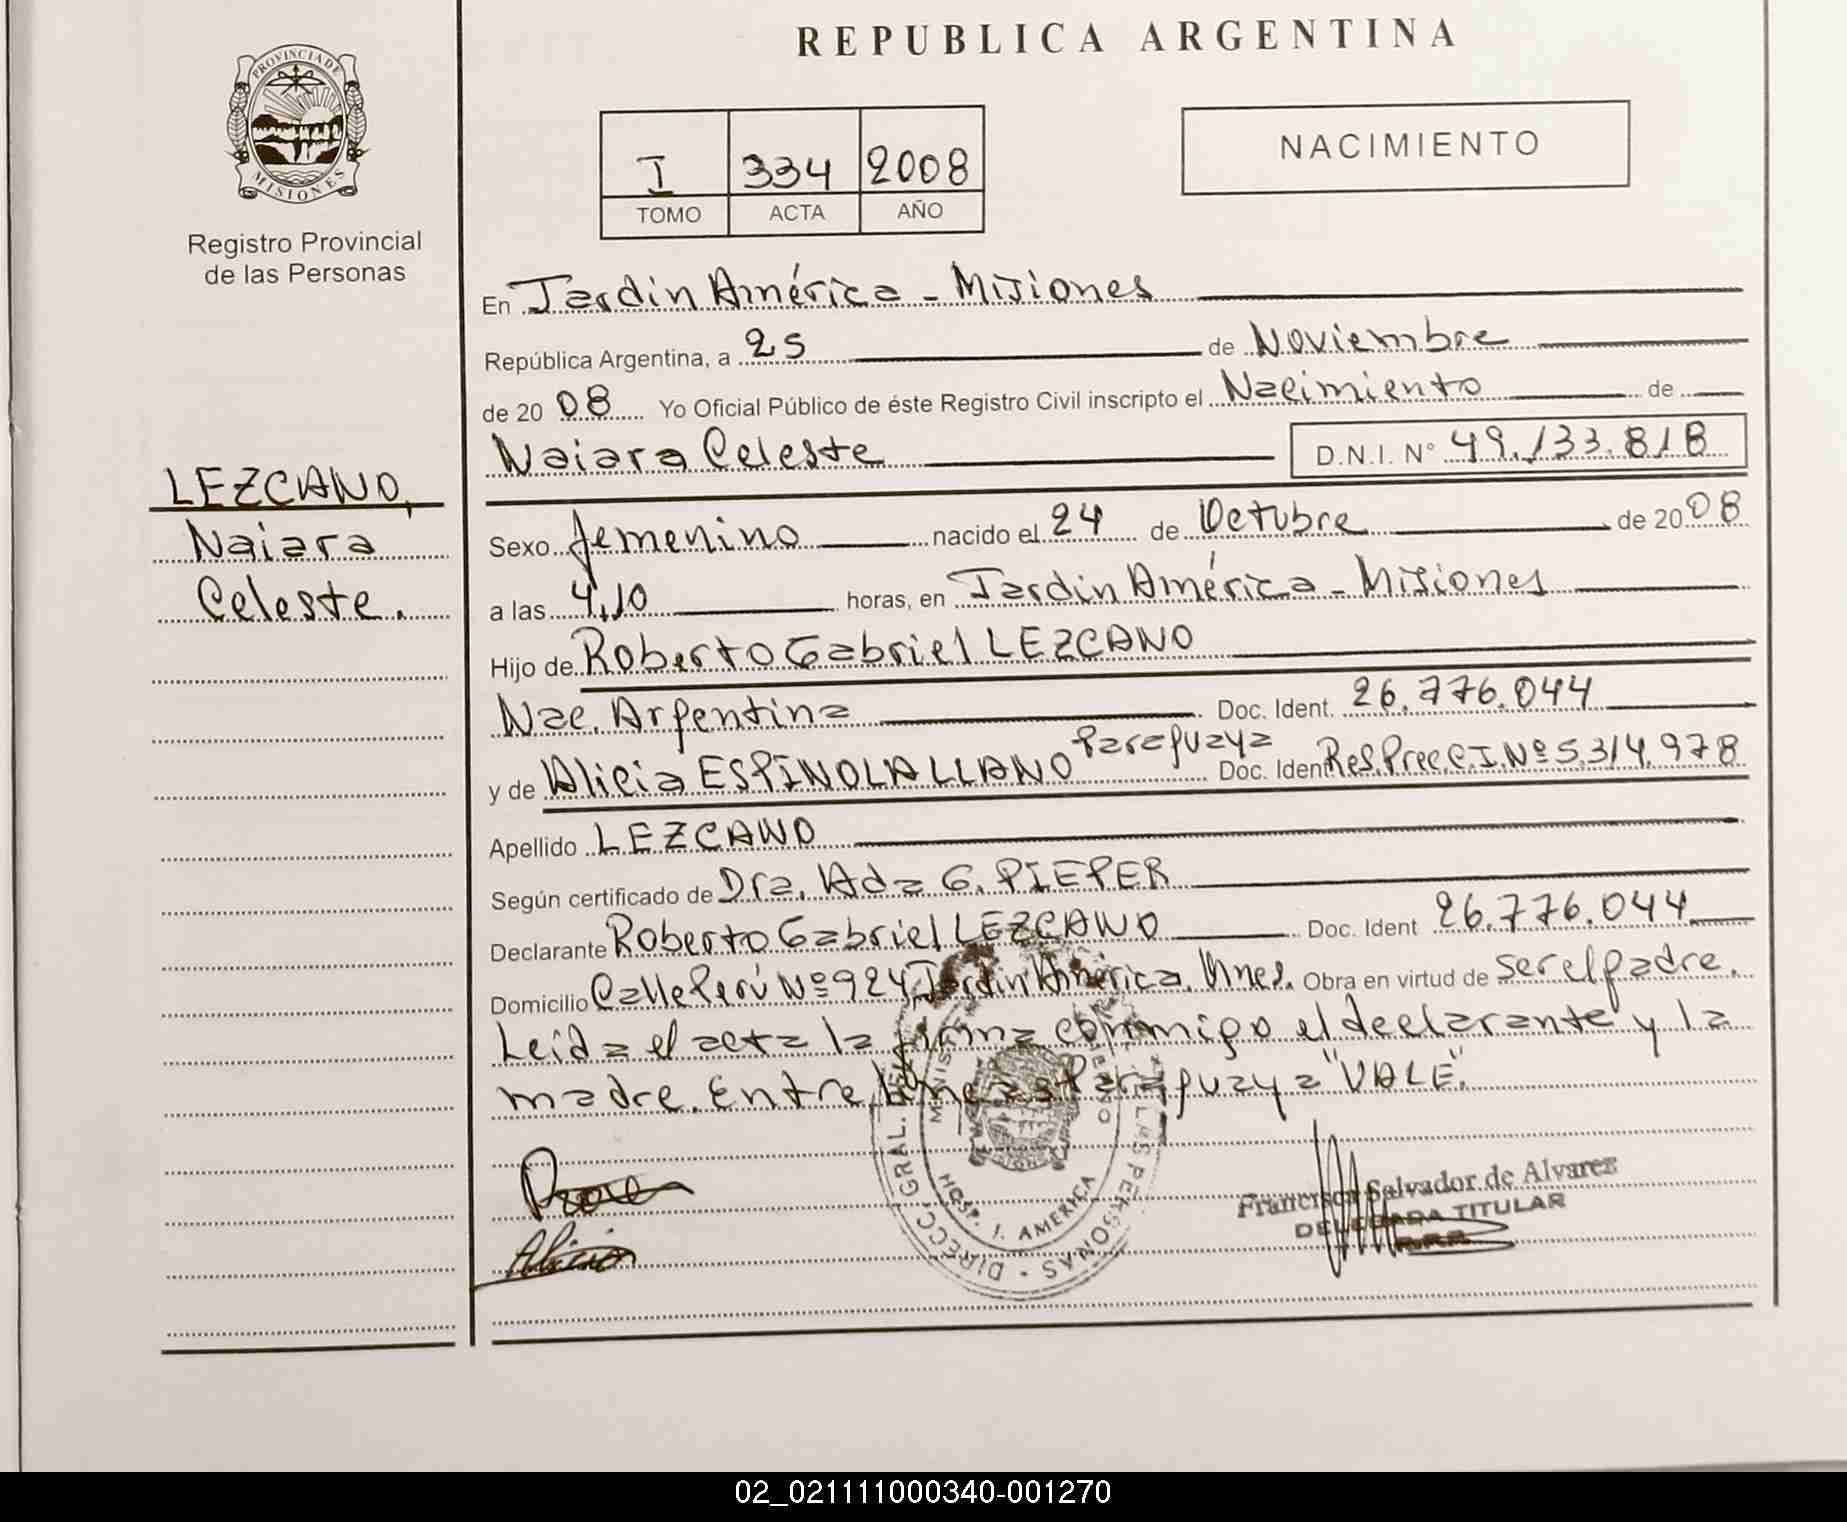 REPUBLICA ARGENTINA
PROVINCIA DE
MISIONES
Registro Provincial
de las Personas
I 334 2008
TOMO ACTA AÑO
NACIMIENTO
En Jardin América - Misiones
República Argentina, a 25 de Noviembre
de 20 08 Yo Oficial Público de éste Registro Civil inscripto el Nacimiento de
Naiara Celeste D.N.I. N° 49.133.818
LEZCANO,
Naiara
Celeste.
Sexo femenino nacido el 24 de Octubre de 20 08
a las 4,10 horas, en Jardin América - Misiones
Hijo de Roberto Gabriel LEZCANO
Nac. Argentina Doc. Ident. 26.776.044
y de Alicia ESPINOLA LLANO Paraguaya Doc. Ident Res. Prec. C.I. Nº 5.314.978
Apellido LEZCANO
Según certificado de Dra. Ada G. PIEPER
Declarante Roberto Gabriel LEZCANO Doc. Ident 26.776.044
Domicilio Calle Perú Nº 924, Jardin América, Mnes. Obra en virtud de ser el padre.
Leida el acta la firma conmigo el declarante y la
madre. Entre lineas Paraguaya "VALE".
DIRECC. GRAL. PERSONAS
HOSP. J. AMERICA
Alicia
Francisca Salvador de Alvarez
DELEGADA TITULAR
R.P.P.
02_021111000340-001270